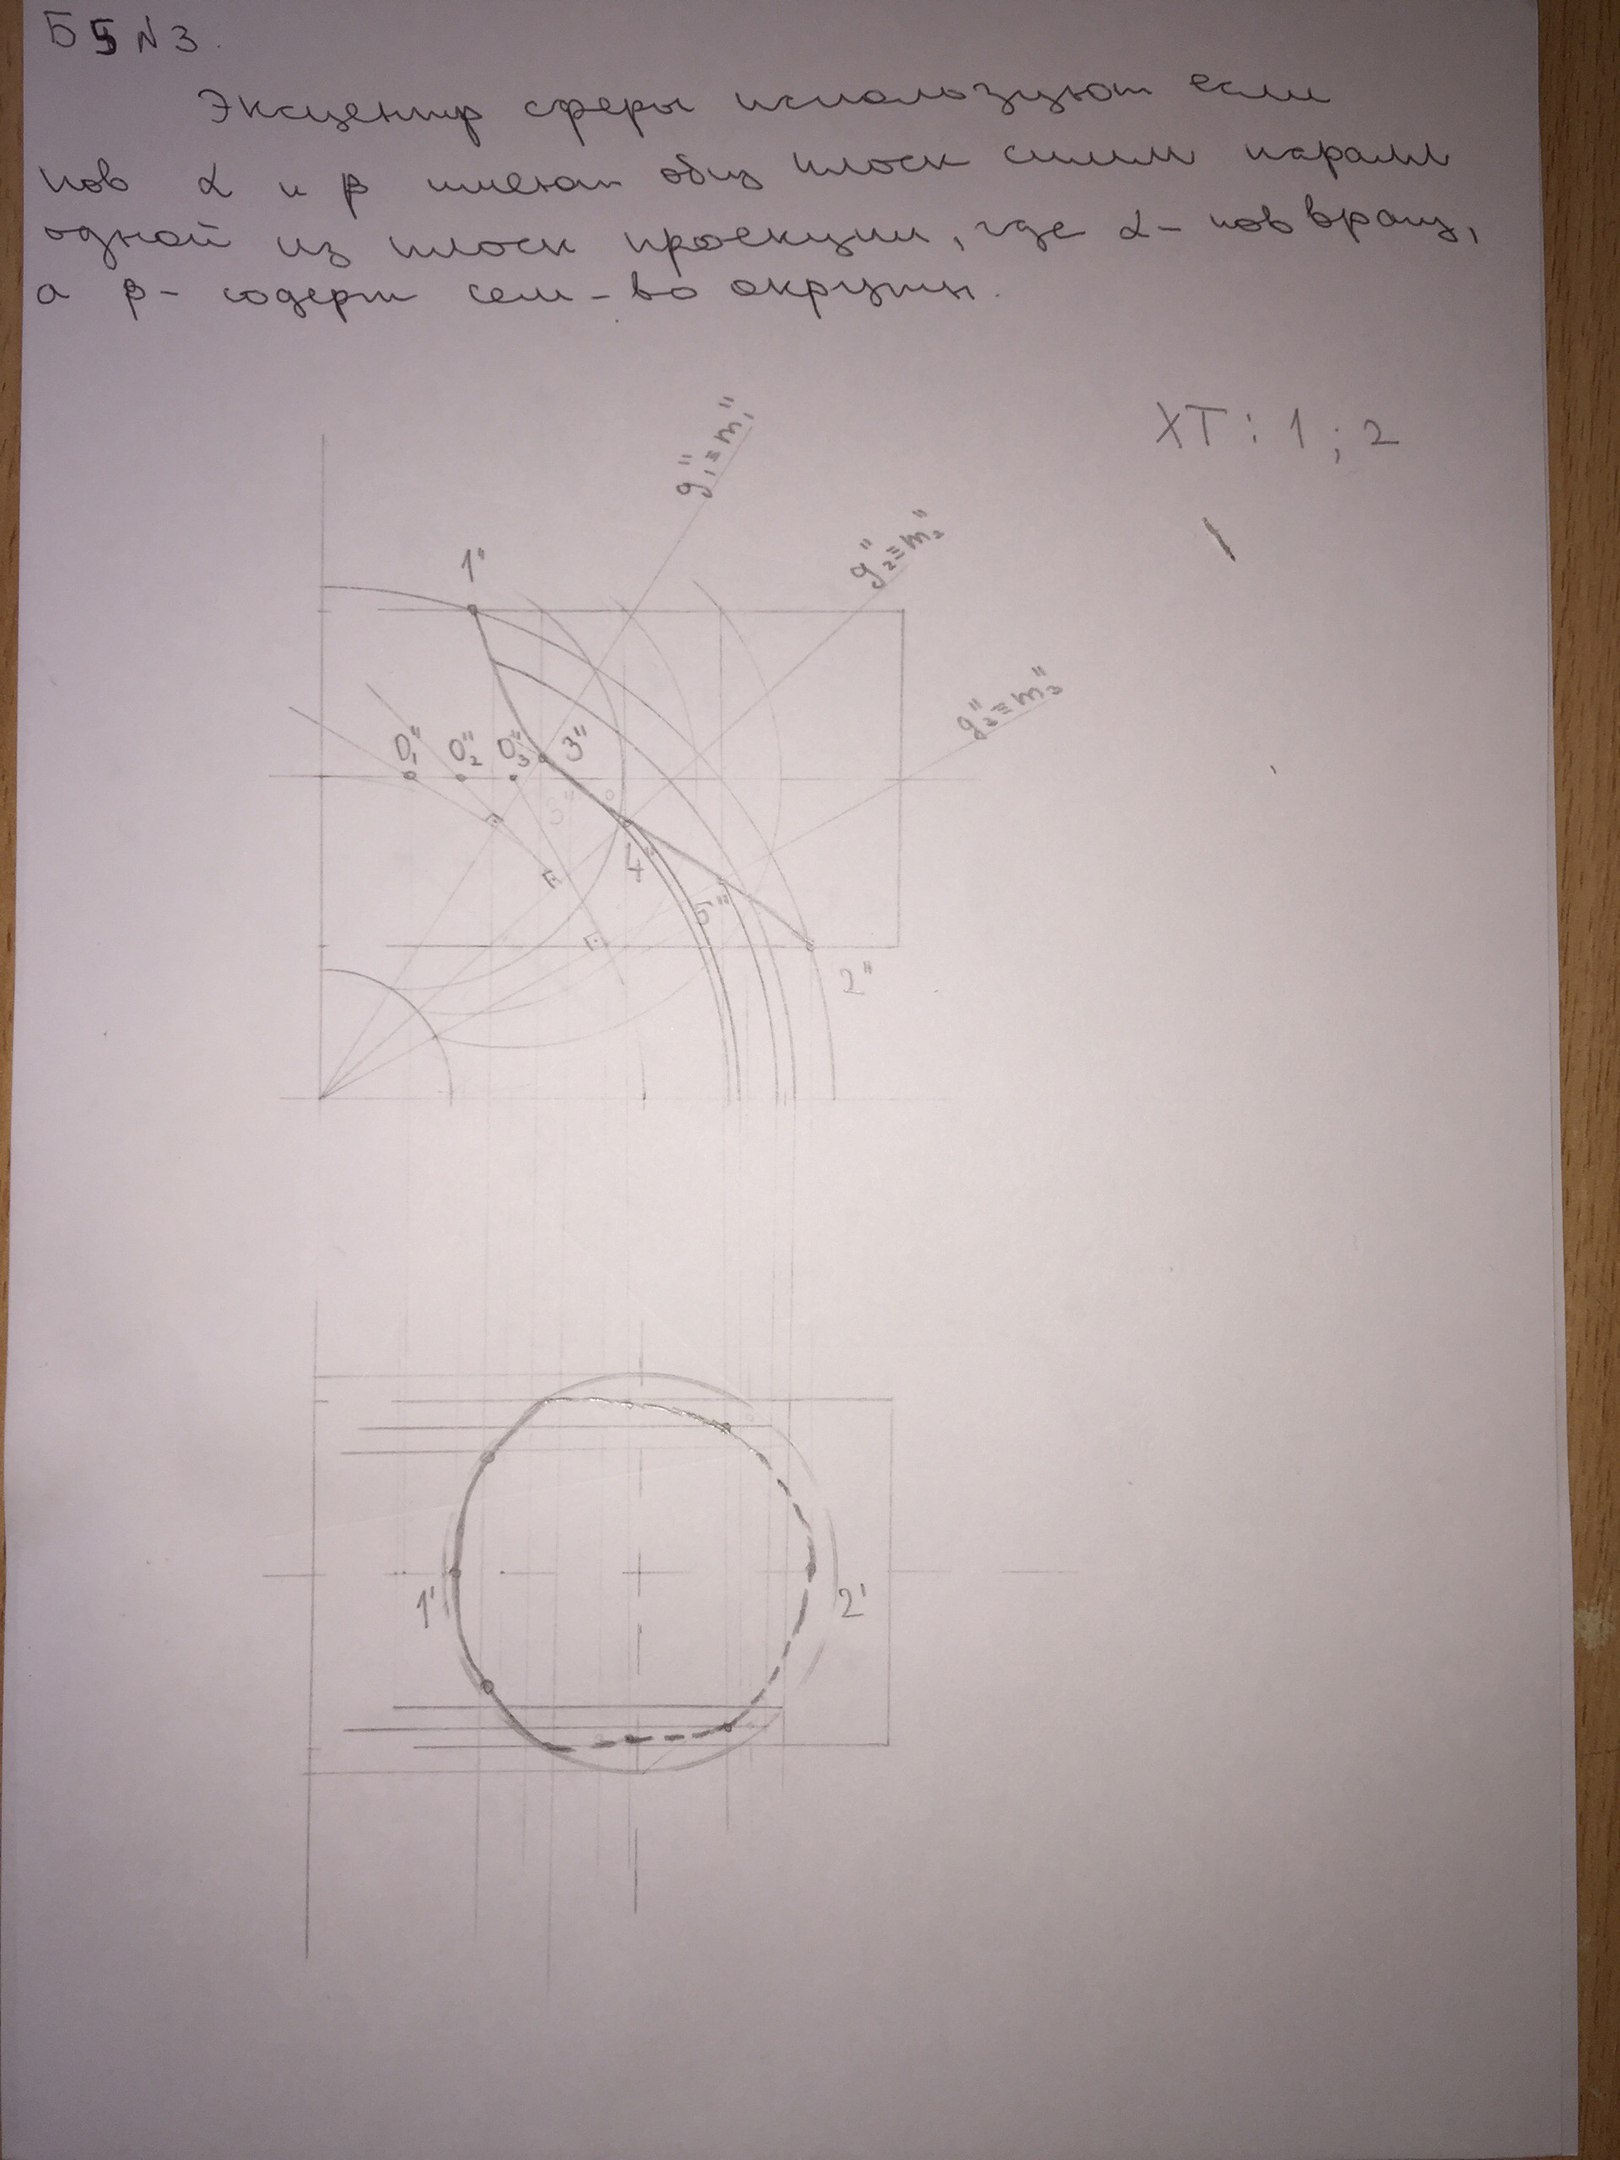 Б5 N 3.
Эксцентр сферы используют если
пов α и β имеют общ плоск симм паралл
одной из плоск проекции, где α - пов вращ,
а β - содерж сем-во окружн.
XT: 1; 2
g₁"≡m₁"
g₂"≡m₂"
1"
g₃"≡m₃"
O₁" O₂" O₃" 3"
4"
5"
2"
1' 2'